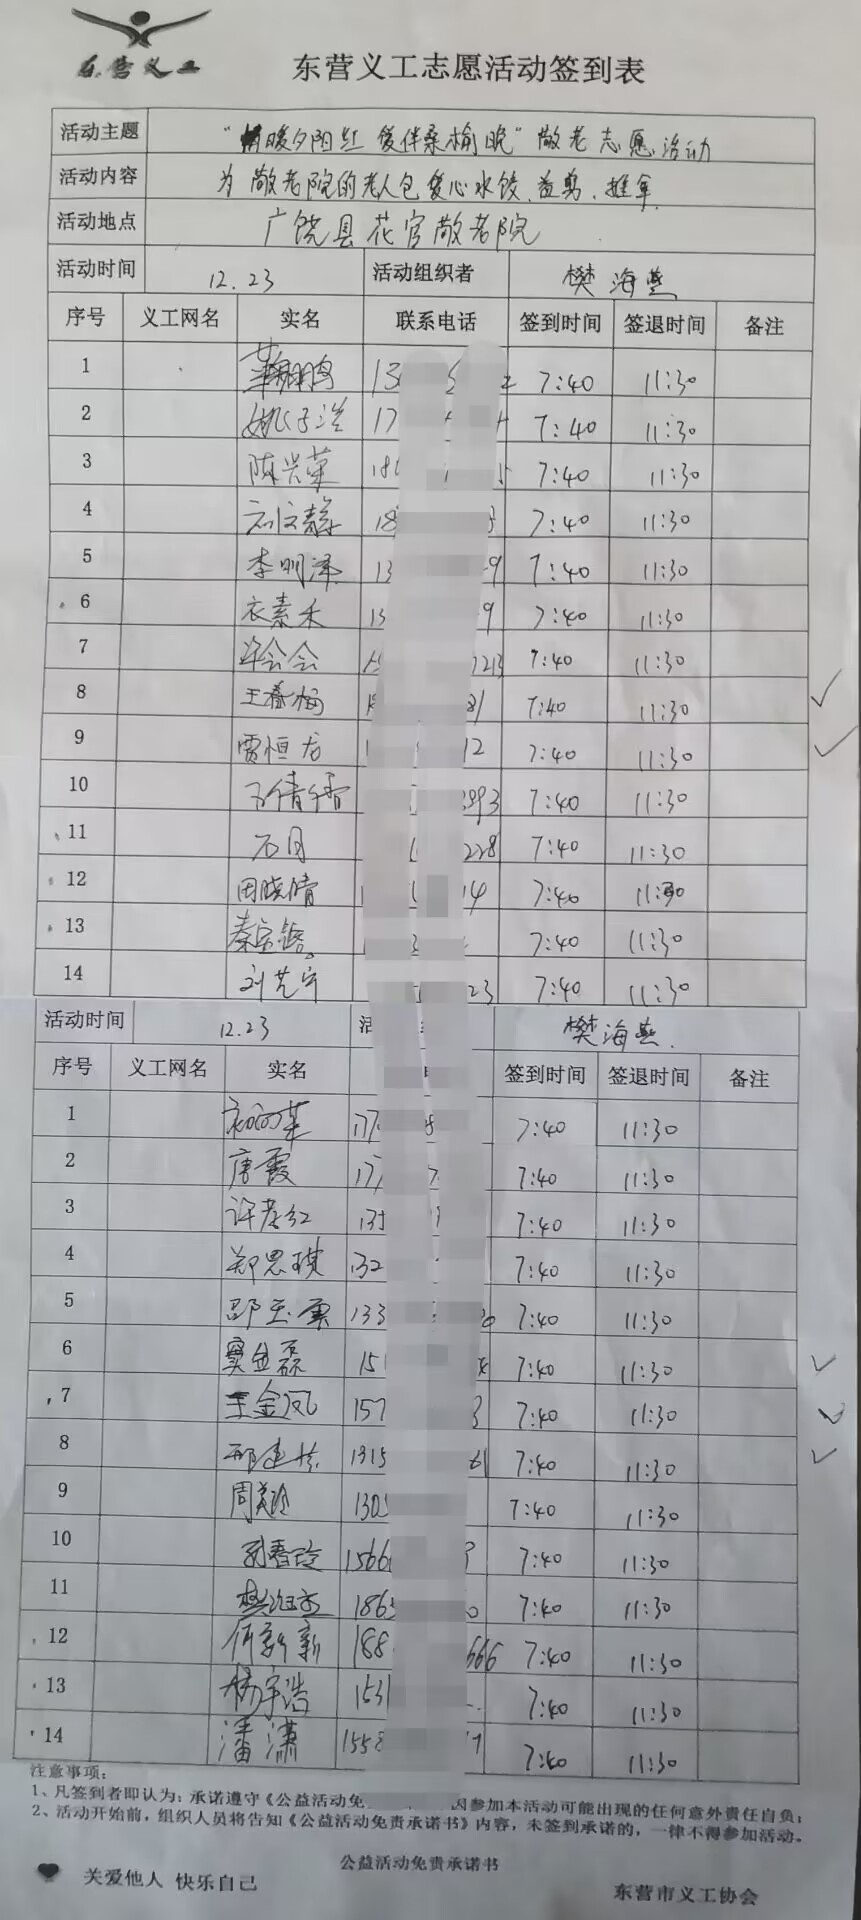 东营义工
东营义工志愿活动签到表
活动主题 "情暖夕阳红 爱伴桑榆晚"敬老志愿活动
活动内容 为敬老院的老人包爱心水饺、义剪、推拿
活动地点 广饶县花官敬老院
活动时间 12.23 活动组织者 樊海燕
序号 义工网名 实名 联系电话 签到时间 签退时间 备注
1 13 2 7:40 11:30
2 姚子洋 17 7:40 11:30
3 陈兴荣 18 5 7:40 11:30
4 刘文静 18 7:40 11:30
5 李明泽 13 9 7:40 11:30
6 衣素禾 13 9 7:40 11:30
7 许会会 213 7:40 11:30
8 王春梅 1 81 7:40 11:30
9 雷恒龙 1 12 7:40 11:30
10 993 7:40 11:30
11 石月 228 7:40 11:30
12 田晓倩 14 7:40 11:30
13 秦宝 7:40 11:30
14 刘艺宁 23 7:40 11:30
活动时间 12.23 活 樊海燕.
序号 义工网名 实名 签到时间 签退时间 备注
1 177 7:40 11:30
2 唐霞 177 7:40 11:30
3 许孝红 135 7:40 11:30
4 郑思琪 132 7:40 11:30
5 邵玉 133 7:40 11:30
6 窦金磊 15 7:40 11:30
7 王金凤 157 3 7:40 11:30
8 邢建 1315 61 7:40 11:30
9 周美玲 130 7:40 11:30
10 刘春玲 1566 7:40 11:30
11 樊海燕 1865 0 7:40 11:30
12 何新新 188 666 7:40 11:30
13 杨宇浩 153 7:40 11:30
14 潘潇 1558 7:40 11:30
注意事项:
1、凡签到者即认为:承诺遵守《公益活动免 因参加本活动可能出现的任何意外责任自负;
2、活动开始前,组织人员将告知《公益活动免责承诺书》内容,未签到承诺的,一律不得参加活动。
公益活动免责承诺书
关爱他人 快乐自己
东营市义工协会